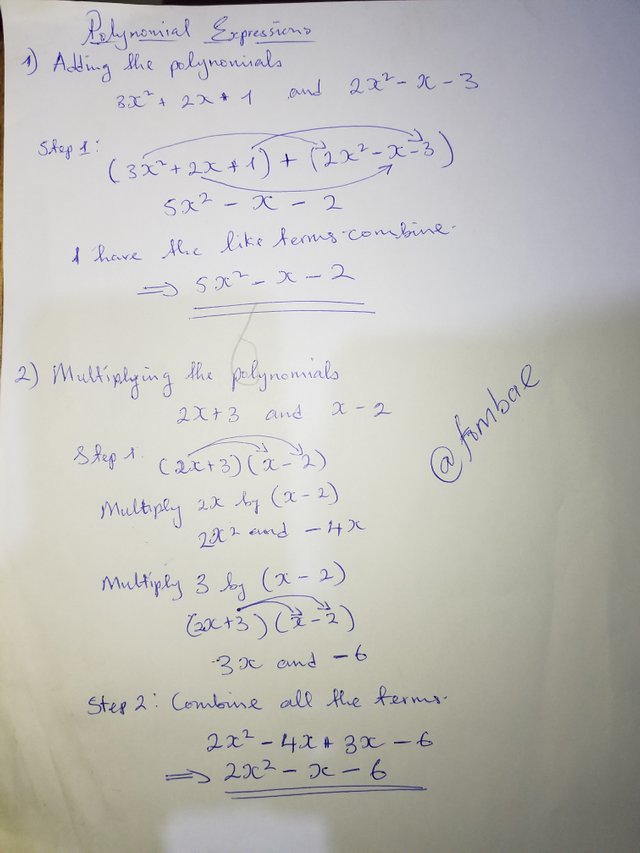 Polynomial Expressions
1) Adding the polynomials
3x² + 2x + 1 and 2x² - x - 3
Step 1:
(3x² + 2x + 1) + (2x² - x - 3)
5x² - x - 2
I have the like terms combine.
⇒ 5x² - x - 2
2) Multiplying the polynomials
2x + 3 and x - 2
Step 1.
(2x + 3)(x - 2)
Multiply 2x by (x - 2)
2x² and - 4x
Multiply 3 by (x - 2)
(2x + 3)(x - 2)
3x and - 6
Step 2: Combine all the terms.
2x² - 4x + 3x - 6
⇒ 2x² - x - 6
@fombae